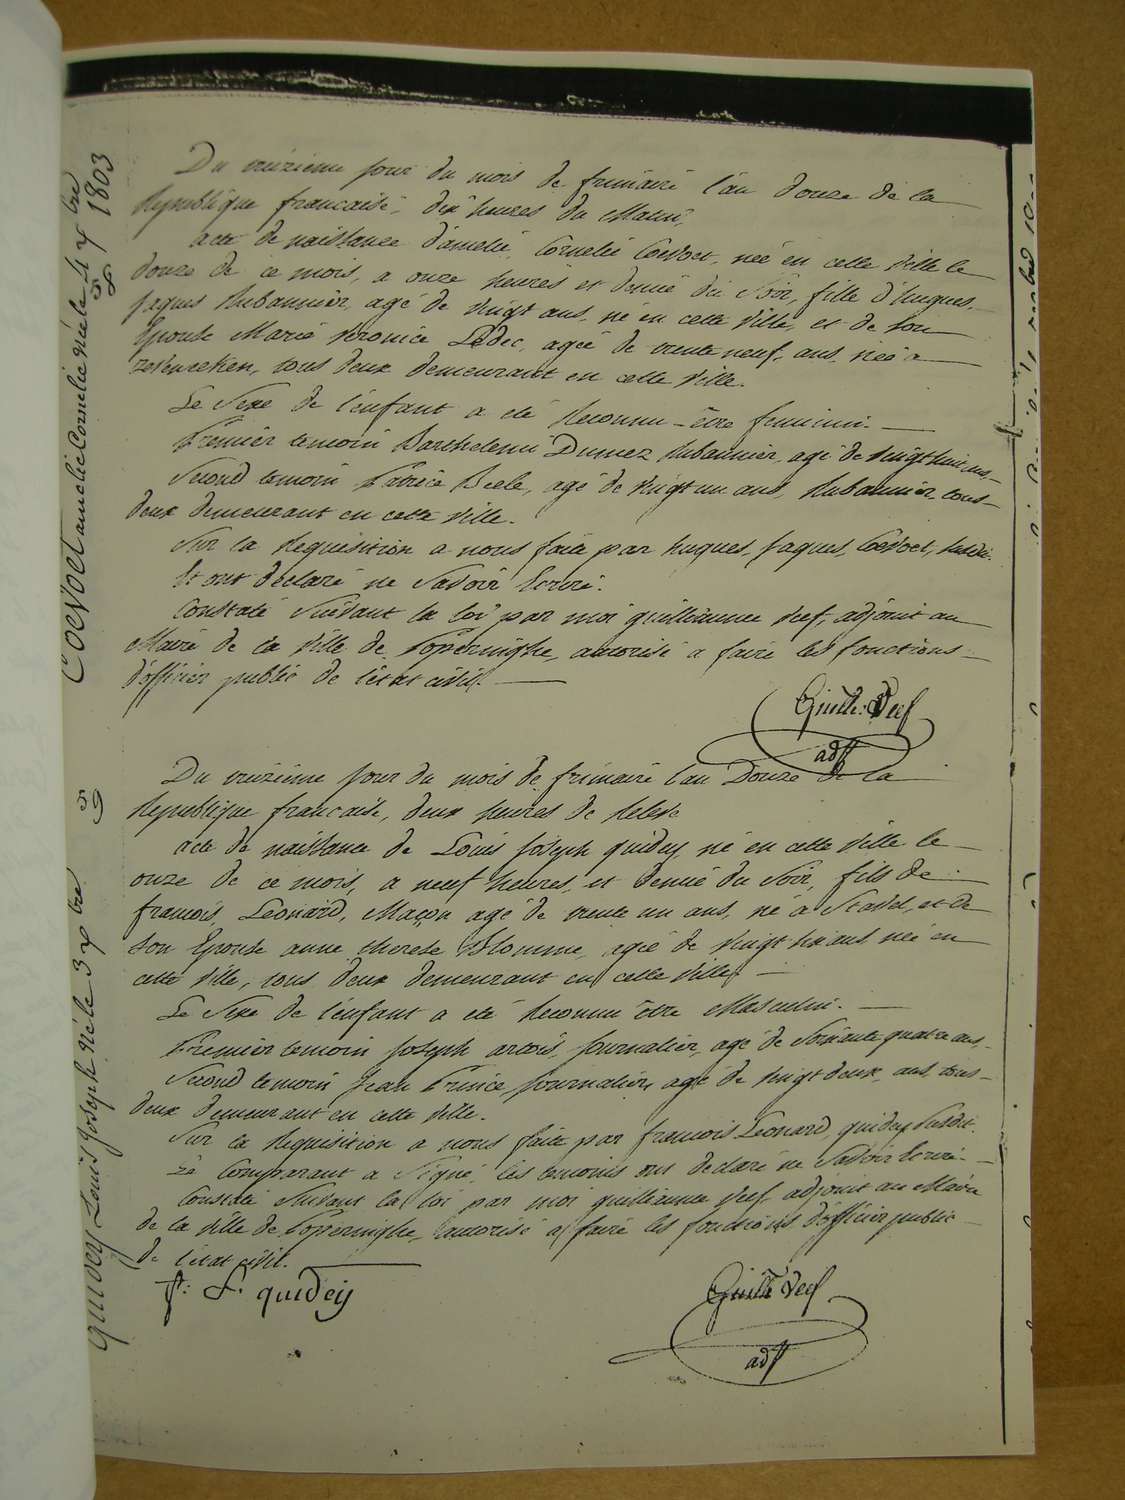 Du treizieme jour du mois de frimaire l'an douze de la
Republique francaise, dix heures du Matin,
acte de naissance d'amelie Cornelie Coevoet, née en cette ville le
douze de ce mois, a onze heures et demie du Soir, fille d'hugues
jaques Rubannier, agé de vingt ans, né en cette ville, et de son
Epouse Marie Veronice Ledec, agée de trente neuf ans, née a
tous deux demeurant en cette ville.
Le Sexe de l'enfant a eté Reconnu être feminin.
Premier temoin Barthelemi Dumez Rubannier, agé de vingt huit ans,
Second temoin Patrice Beele, agé de vingt un ans, Rubannier tous
deux demeurant en cette ville.
Sur la Requisition a nous faite par hugues jaques Coevoet, susdit.
Et ont declaré ne Savoir Ecrire.
Constaté Suivant la loi par moi guilleaume Veef, adjoint au
Maire de la ville de Poperinghe, autorisé a faire les fonctions
d'officier public de l'état civil.
Guille: Veef
adjt
Du treizieme jour du mois de frimaire l'an Douze de la
Republique francaise, deux heures de Relevé
acte de naissance de Louis Joseph quidey, né en cette ville le
onze de ce mois, a neuf heures, et demie du Soir, fils de
francois Leonard, Maçon agé de trente un ans, né a Stavel, et de
Son Epouse anne therese Blomme, agée de vingt ans née en
cette ville, tous deux demeurant en cette ville,
Le Sexe de l'enfant a eté Reconnu être Masculin.
Premier temoin Joseph artois, journalier, agé de Soixante quatre ans,
Second temoin Jean Prince, journalier, agé de vingt deux ans, tous
deux demeurant en cette ville.
Sur la Requisition a nous faite par francois Leonard quidey Susdit.
Le Comparant a Signé, les temoins ont declaré ne Savoir Ecrire.
Constaté Suivant la loi par moi guilleaume Veef, adjoint au Maire
de la ville de Poperinghe, autorisé a faire les fonctions d'officier public
de l'état civil.
f: L. quidey
Guille Veef
adjt
Coevoet amelie Cornelie Née le 4 xbre 1803
58
Quidey Louis Joseph Né le 3 xbre
59